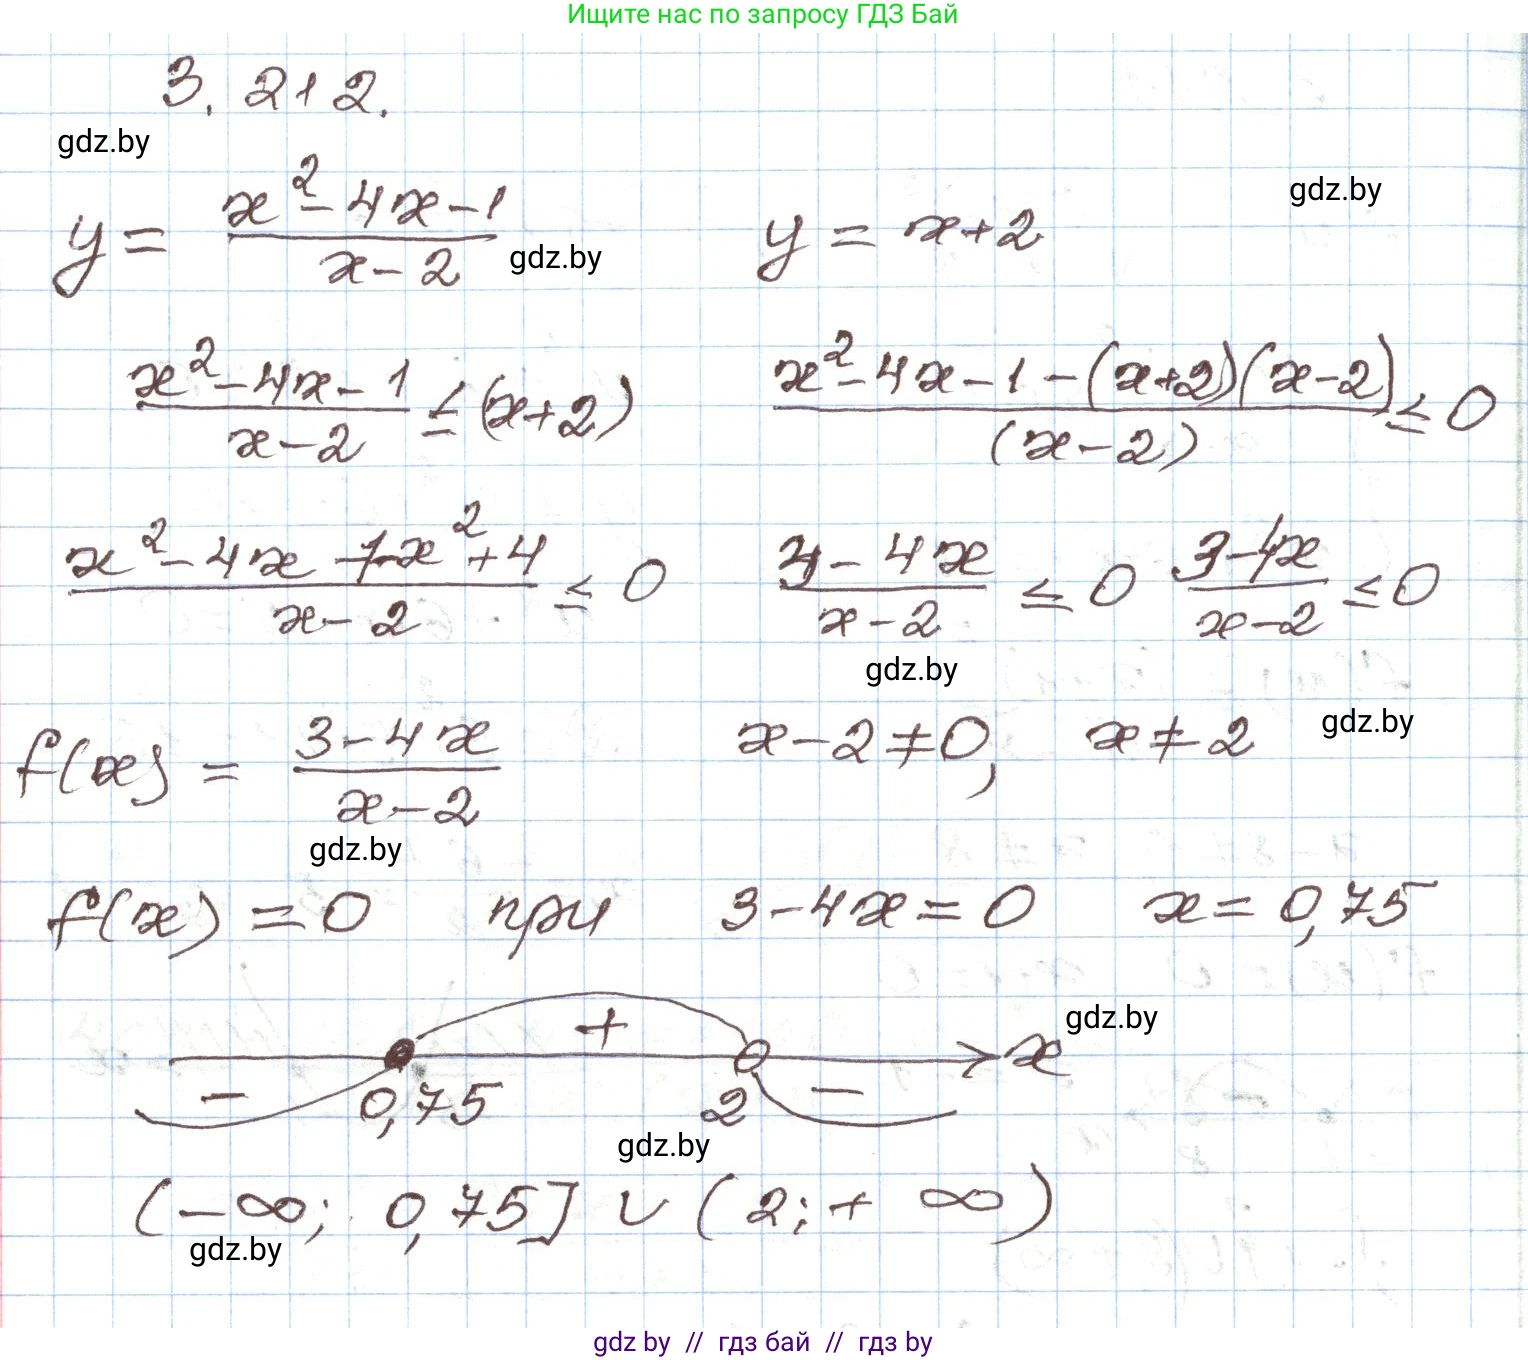 Ищите нас по запросу ГДЗ Бай
3.212.
gdz.by
y = (x² - 4x - 1)/(x - 2) gdz.by y = x + 2 gdz.by
(x² - 4x - 1)/(x - 2) ≤ (x + 2) (x² - 4x - 1 - (x + 2)(x - 2))/(x - 2) ≤ 0
(x² - 4x - 1 - x² + 4)/(x - 2) ≤ 0 (3 - 4x)/(x - 2) ≤ 0 (3 - 4x)/(x - 2) ≤ 0
gdz.by
f(x) = (3 - 4x)/(x - 2) x - 2 ≠ 0, x ≠ 2 gdz.by
gdz.by
f(x) = 0 при 3 - 4x = 0 x = 0,75
gdz.by
+ x
- 0,75 2 -
gdz.by
(-∞; 0,75] ∪ (2; + ∞)
gdz.by
gdz by // гдз бай // гдз by